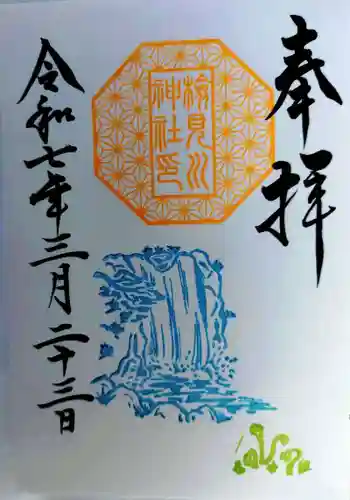 奉拝
検見川
神社印
令和七年三月二十三日